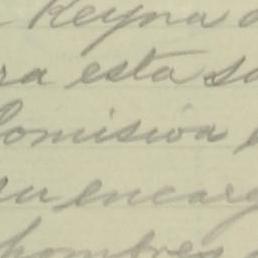 Reyna
ra esta su
Comision
su encarg
hombres